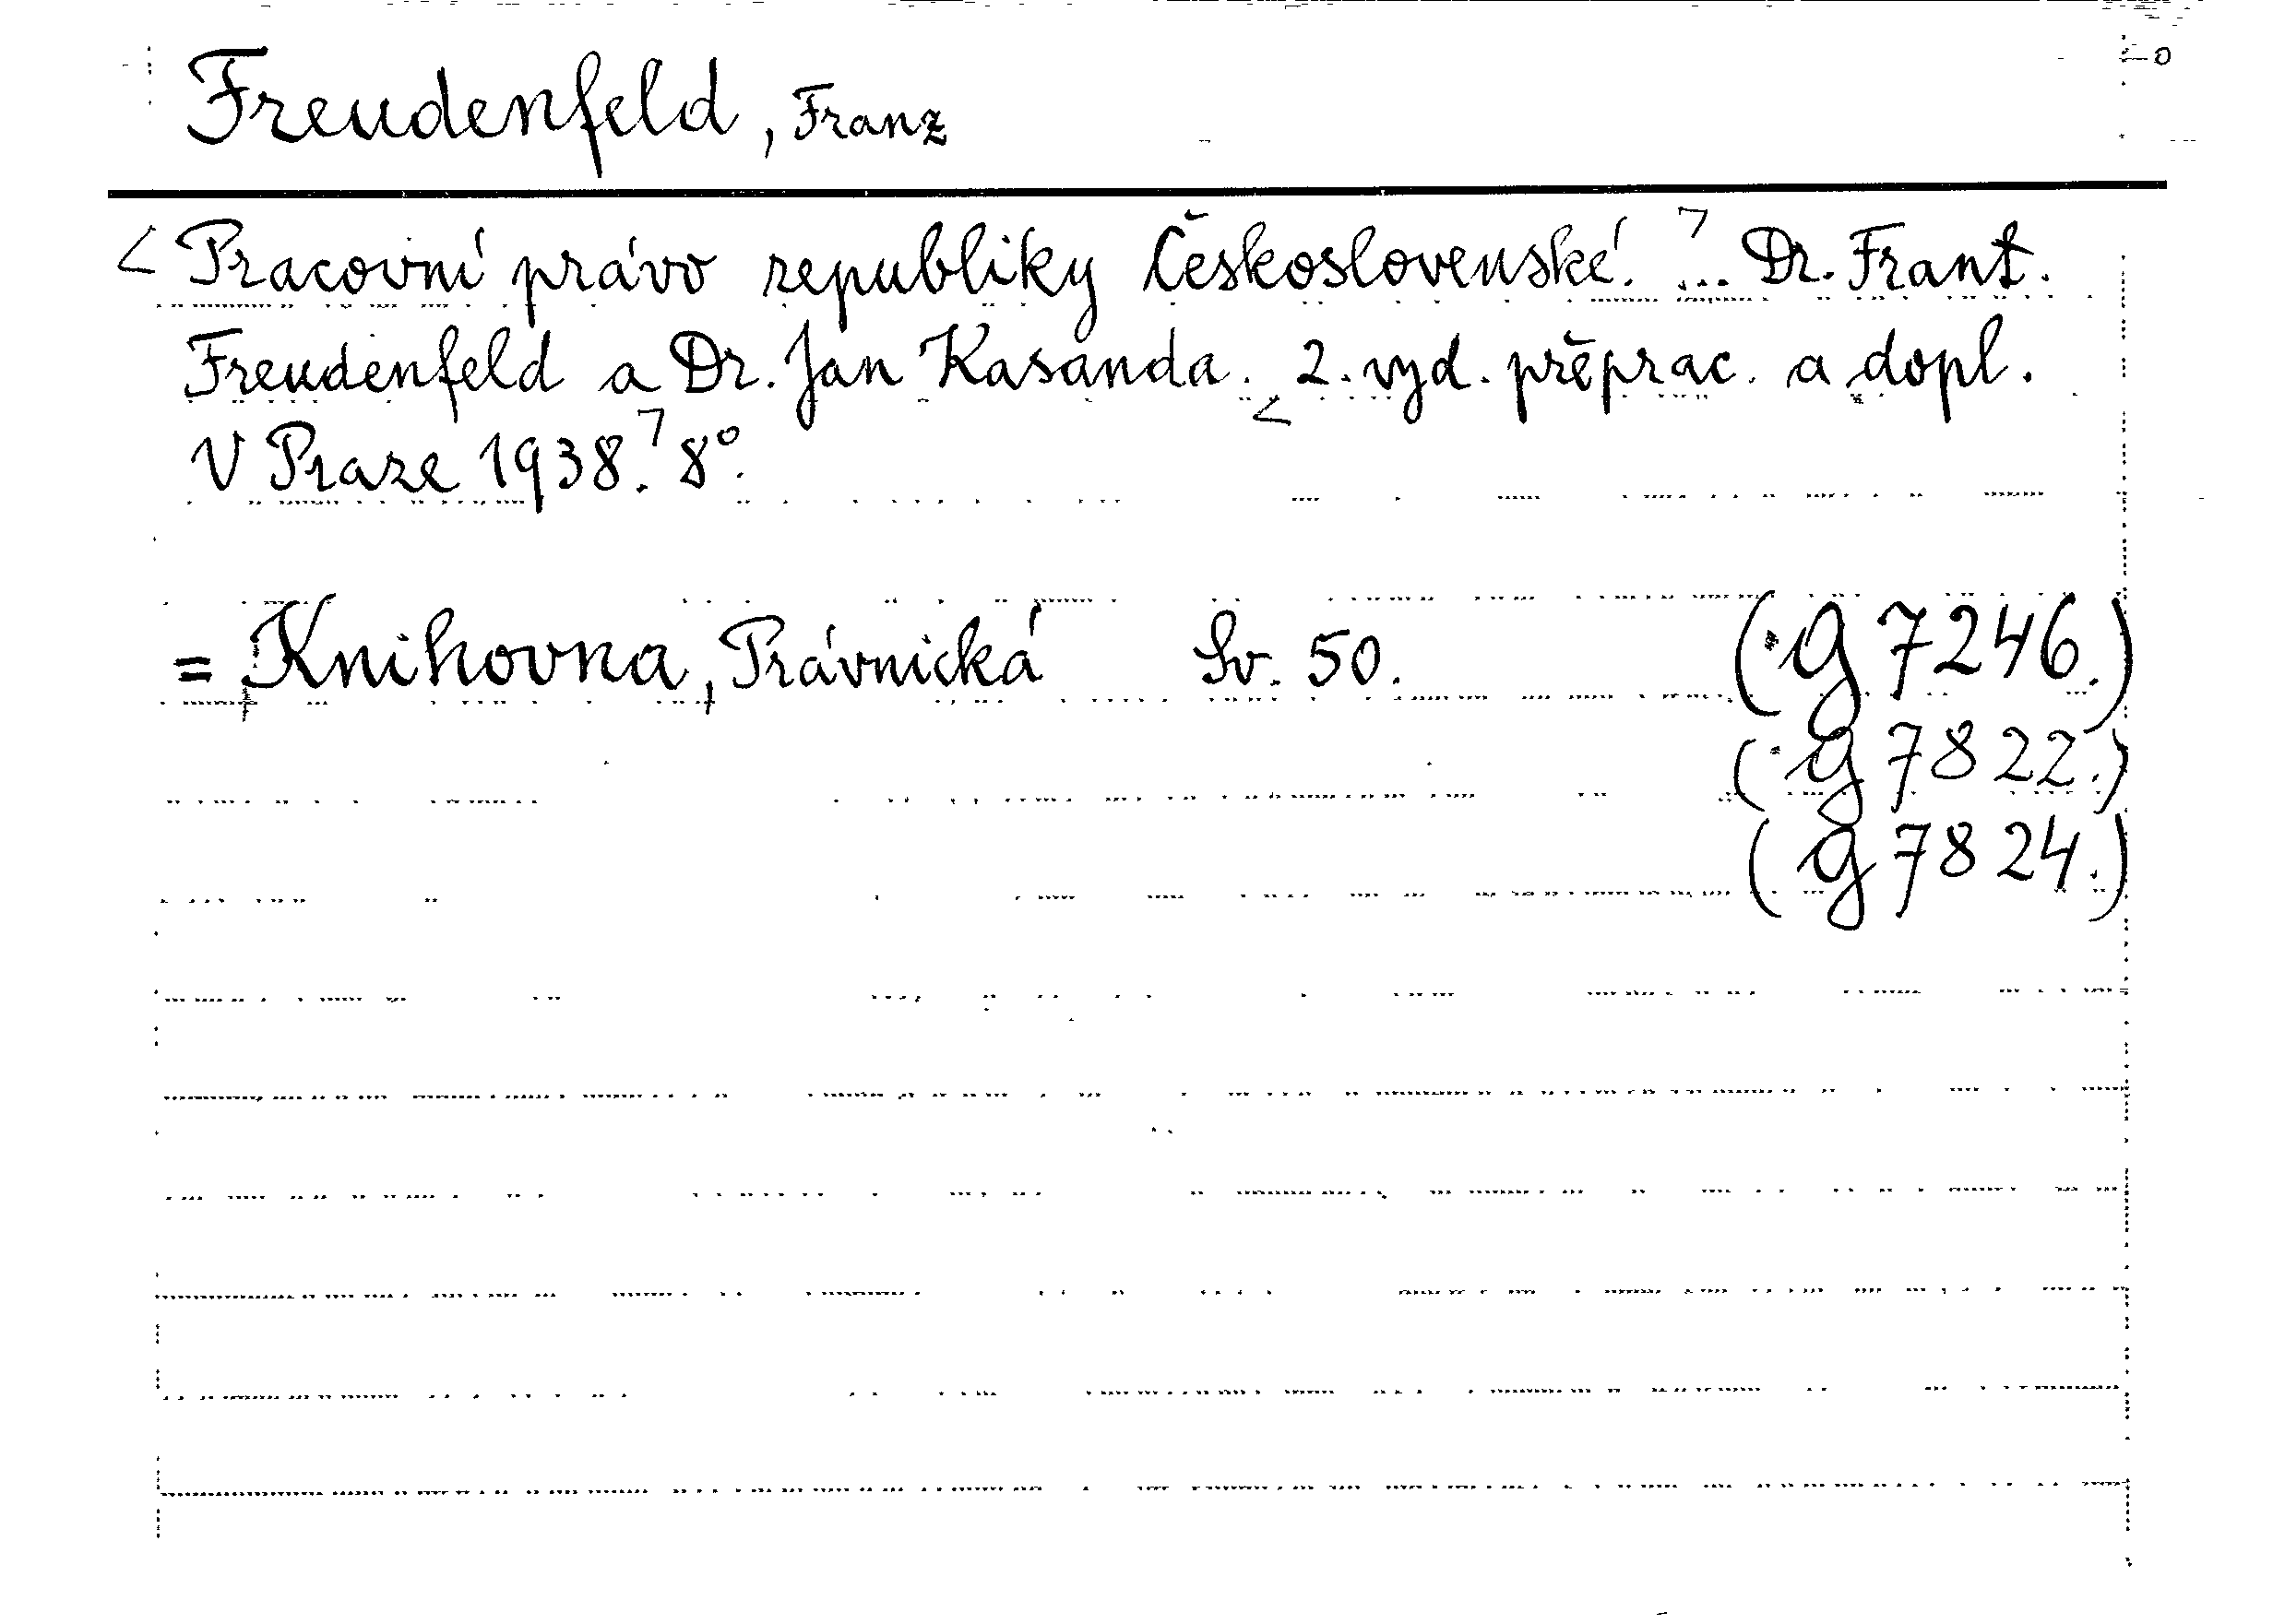 Freudenfeld, Franz
< Pracovní právo republiky Československé. > ... Dr. Frant.
Freudenfeld a Dr. Jan Kasanda. < 2. vyd. přěprac. a dopl.
V Praze 1938. > 8°.
= Knihovna, Právnická Sv. 50. (· g 7246.)
(· g 7822.)
( g 7824.)